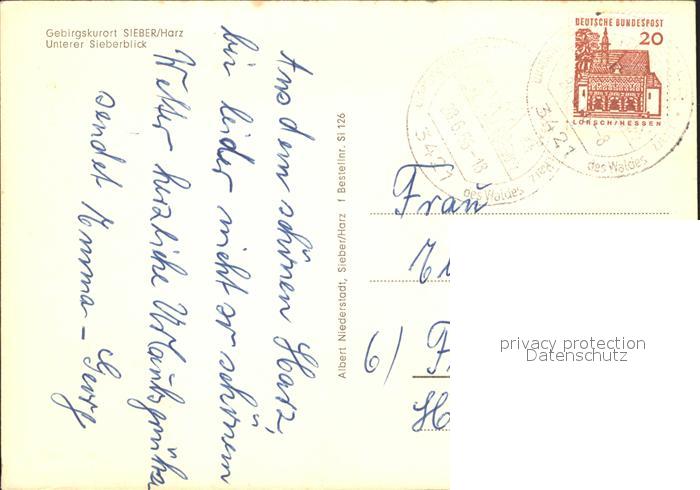 Gebirgskurort SIEBER/Harz
Unterer Sieberblick
Aus dem schönen Harz,
bei leider nicht so schönem
Wetter herzliche Urlaubsgrüße
sendet Emma - Georg
Albert Niederstadt, Sieber/Harz f Bestellnr. SI 126
DEUTSCHE BUNDESPOST
20
LORSCH/HESSEN
3421
des Waldes
3421
des Waldes
Frau
6)
privacy protection
Datenschutz